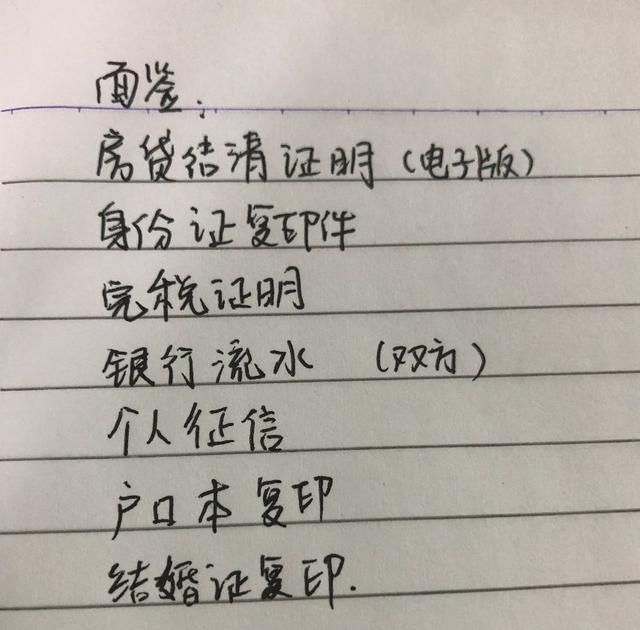 面签：
房贷结清证明（电子版）
身份证复印件
完税证明
银行流水 （双方）
个人征信
户口本复印
结婚证复印.